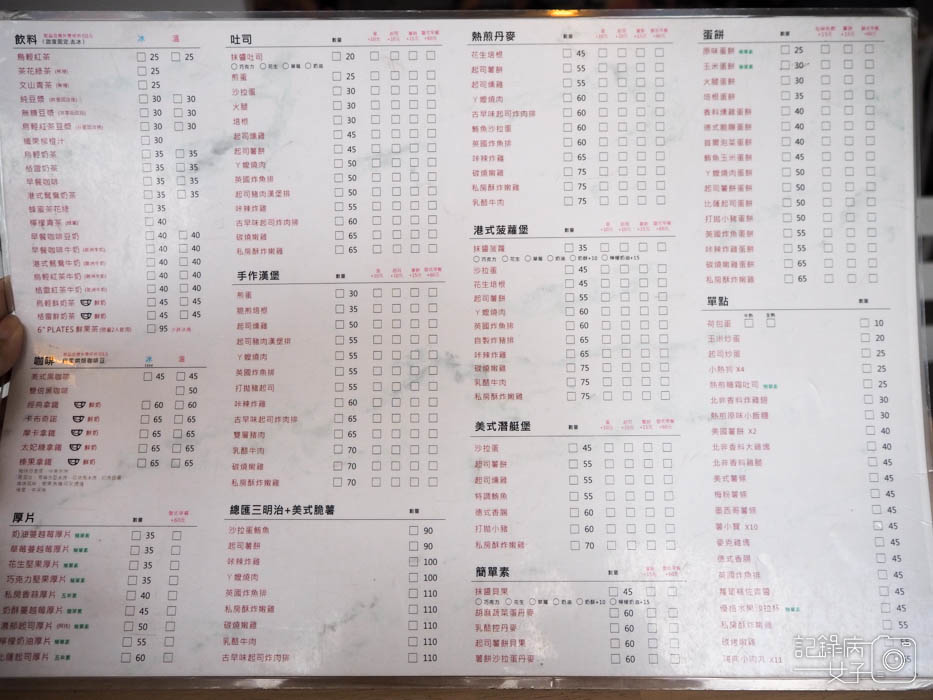 飲料
冰 溫
烏輕紅茶 25 25
茶花綠茶 25
文山青茶 25
純豆漿 30 30
無糖豆漿 30 30
烏輕紅茶豆漿 30 30
糖果柳橙汁 30
烏輕奶茶 35 35
格雷奶茶 35 35
早餐咖啡 35 35
港式鴛鴦奶茶 35 35
蜂蜜茶花綠 35
檸檬青茶 40
早餐咖啡豆奶 40 40
早餐咖啡牛奶 40 40
港式鴛鴦牛奶 40 40
烏輕紅茶牛奶 40 40
格雷紅茶牛奶 40 40
烏輕鮮奶茶 鮮奶 45 45
格雷鮮奶茶 鮮奶 45 45
6" PLATES 鮮果茶 95
咖啡
冰 溫
美式黑咖啡 45 45
雙倍黑咖啡 50
經典拿鐵 鮮奶 60 60
卡布奇諾 鮮奶 65 65
摩卡拿鐵 鮮奶 65 65
太妃糖拿鐵 鮮奶 65 65
榛果拿鐵 鮮奶 65 65
厚片 數量
奶油蔓越莓厚片 簡單素 35
草莓蔓越莓厚片 簡單素 35
花生堅果厚片 簡單素 35
巧克力堅果厚片 簡單素 35
私房香蒜厚片 五辛素 40
奶酥蔓越莓厚片 簡單素 45
濃郁起司厚片 簡單素 50
檸檬奶油厚片 簡單素 55
比薩起司厚片 五辛素 60
吐司 數量
抹醬吐司 20
巧克力 花生 草莓 奶油
煎蛋 25
沙拉蛋 30
火腿 30
培根 30
起司燻雞 45
起司薯餅 45
丫嬤燒肉 50
英國炸魚排 50
起司豬肉漢堡排 50
咔辣炸雞 55
古早味起司炸肉排 60
碳燒嫩雞 65
私房酥炸嫩雞 65
手作漢堡 數量
煎蛋 30
脆煎培根 35
起司燻雞 50
起司豬肉漢堡排 55
丫嬤燒肉 55
英國炸魚排 55
打拋豬起司 55
咔辣炸雞 60
古早味起司炸肉排 65
雙層豬肉 65
乳醋牛肉 70
碳燒嫩雞 70
私房酥炸嫩雞 70
總匯三明治+美式脆薯 數量
沙拉蛋鮪魚 90
起司薯餅 90
咔辣炸雞 100
丫嬤燒肉 100
英國炸魚排 110
私房酥炸嫩雞 110
碳燒嫩雞 110
乳醋牛肉 110
古早味起司炸肉排 110
熱煎丹麥 數量
花生培根 45
起司薯餅 55
起司燻雞 55
丫嬤燒肉 60
古早味起司炸肉排 60
鮪魚沙拉蛋 60
英國炸魚排 60
咔辣炸雞 65
碳燒嫩雞 75
私房酥炸嫩雞 75
乳醋牛肉 75
港式菠蘿堡 數量
抹醬菠蘿 35
巧克力 花生 草莓 奶油 奶酥+10 檸檬奶油+15
沙拉蛋 45
花生培根 45
起司薯餅 55
丫嬤燒肉 60
英國炸魚排 60
自製炸豬排 65
咔辣炸雞 65
碳燒嫩雞 75
乳醋牛肉 75
私房酥炸嫩雞 75
美式潛艇堡 數量
沙拉蛋 45
起司薯餅 55
起司燻雞 55
特調鮪魚 55
德式香腸 60
打拋小豬 60
私房酥炸嫩雞 70
簡單素 數量
抹醬貝果 45
巧克力 花生 草莓 奶油 奶酥+10 檸檬奶油+15
胡麻蔬菜蛋丹麥 60
乳醋控丹麥 60
起司薯餅貝果 60
薯餅沙拉蛋丹麥 60
蛋餅 數量
原味蛋餅 簡單素 25
玉米蛋餅 簡單素 30
火腿蛋餅 30
培根蛋餅 35
香料燻雞蛋餅 40
德式脆腸蛋餅 40
首爾泡菜蛋餅 40
鮪魚玉米蛋餅 45
丫嬤燒肉蛋餅 50
起司薯餅蛋餅 50
比薩起司蛋餅 50
打拋小豬蛋餅 50
英國炸魚蛋餅 55
咔辣炸雞蛋餅 55
碳燒嫩雞蛋餅 65
私房酥炸嫩雞蛋餅 65
單點 數量
荷包蛋 半熟 全熟 10
玉米炒蛋 20
起司炒蛋 25
小熱狗 X4 25
熱煎糖霜吐司 簡單素 25
北非香料炸雞翅 30
熱煎原味小飯糰 30
美國薯餅 X2 40
北非香料大雞塊 40
北非香料雞腿 45
美式薯條 45
梅粉薯條 45
墨西哥薯條 45
薯小賢 X10 45
麥克雞塊 45
德式香腸 45
英國炸魚排 45
蘿蔔糕佐青醬 45
優格水果沙拉杯 簡單素 45
私房酥炸嫩雞 55
碳烤嫩雞
瑞典小肉丸 X11
記錄病女子